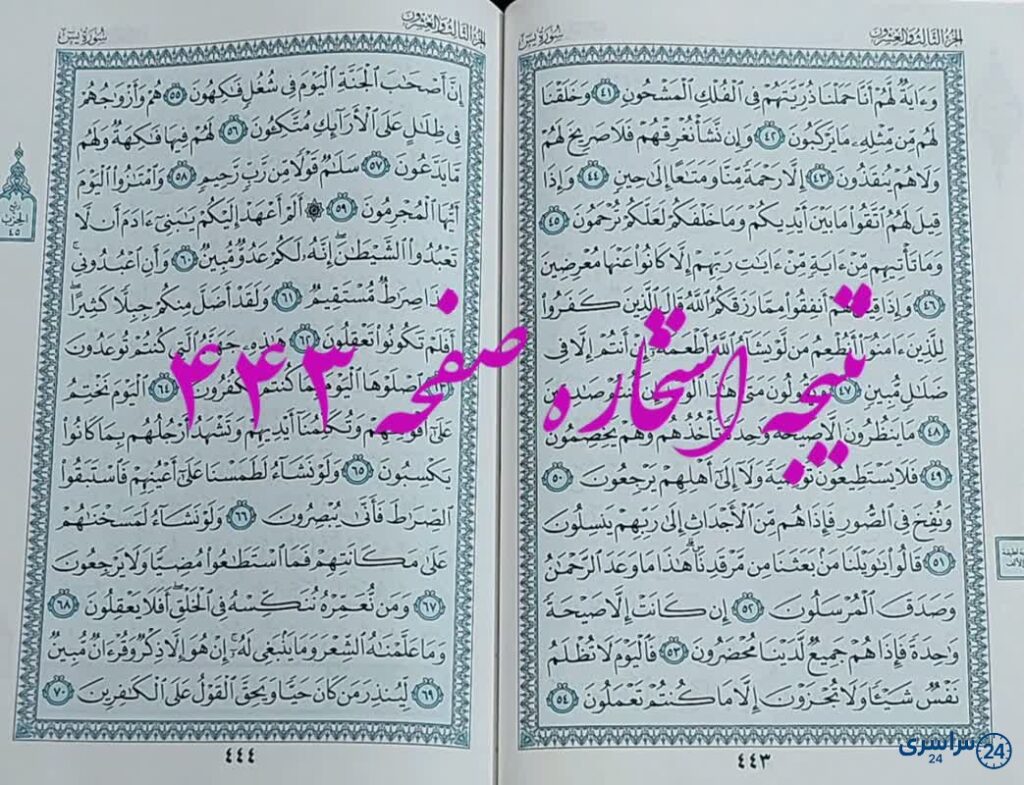 الجزء الثالث والعشرون
سورة يس
وَءَايَةٌ لَّهُمْ أَنَّا حَمَلْنَا ذُرِّيَّتَهُمْ فِي الْفُلْكِ الْمَشْحُونِ ٤١ وَخَلَقْنَا
لَهُم مِّن مِّثْلِهِۦ مَا يَرْكَبُونَ ٤٢ وَإِن نَّشَأْ نُغْرِقْهُمْ فَلَا صَرِيخَ لَهُمْ
وَلَا هُمْ يُنقَذُونَ ٤٣ إِلَّا رَحْمَةً مِّنَّا وَمَتَاعًا إِلَىٰ حِينٍ ٤٤ وَإِذَا
قِيلَ لَهُمُ اتَّقُوا مَا بَيْنَ أَيْدِيكُمْ وَمَا خَلْفَكُمْ لَعَلَّكُمْ تُرْحَمُونَ ٤٥
وَمَا تَأْتِيهِم مِّنْ ءَايَةٍ مِّنْ ءَايَاتِ رَبِّهِمْ إِلَّا كَانُوا عَنْهَا مُعْرِضِينَ
٤٦ وَإِذَا قِيلَ لَهُمْ أَنفِقُوا مِمَّا رَزَقَكُمُ اللَّهُ قَالَ الَّذِينَ كَفَرُوا
لِلَّذِينَ ءَامَنُوا أَنُطْعِمُ مَن لَّوْ يَشَاءُ اللَّهُ أَطْعَمَهُ إِنْ أَنتُمْ إِلَّا فِي
ضَلَالٍ مُّبِينٍ ٤٧ وَيَقُولُونَ مَتَىٰ هَٰذَا الْوَعْدُ إِن كُنتُمْ صَادِقِينَ
٤٨ مَا يَنظُرُونَ إِلَّا صَيْحَةً وَاحِدَةً تَأْخُذُهُمْ وَهُمْ يَخِصِّمُونَ
٤٩ فَلَا يَسْتَطِيعُونَ تَوْصِيَةً وَلَا إِلَىٰ أَهْلِهِمْ يَرْجِعُونَ ٥٠
وَنُفِخَ فِي الصُّورِ فَإِذَا هُم مِّنَ الْأَجْدَاثِ إِلَىٰ رَبِّهِمْ يَنسِلُونَ
٥١ قَالُوا يَاوَيْلَنَا مَن بَعَثَنَا مِن مَّرْقَدِنَا هَٰذَا مَا وَعَدَ الرَّحْمَٰنُ
وَصَدَقَ الْمُرْسَلُونَ ٥٢ إِن كَانَتْ إِلَّا صَيْحَةً
وَاحِدَةً فَإِذَا هُمْ جَمِيعٌ لَّدَيْنَا مُحْضَرُونَ ٥٣ فَالْيَوْمَ لَا تُظْلَمُ
نَفْسٌ شَيْئًا وَلَا تُجْزَوْنَ إِلَّا مَا كُنتُمْ تَعْمَلُونَ ٥٤
٤٤٣
الجزء الثالث والعشرون
سورة يس
إِنَّ أَصْحَابَ الْجَنَّةِ الْيَوْمَ فِي شُغُلٍ فَاكِهُونَ ٥٥ هُمْ وَأَزْوَاجُهُمْ
فِي ظِلَالٍ عَلَى الْأَرَائِكِ مُتَّكِئُونَ ٥٦ لَهُمْ فِيهَا فَاكِهَةٌ وَلَهُم
مَّا يَدَّعُونَ ٥٧ سَلَامٌ قَوْلًا مِّن رَّبٍّ رَّحِيمٍ ٥٨ وَامْتَازُوا الْيَوْمَ
أَيُّهَا الْمُجْرِمُونَ ٥٩ ۞ أَلَمْ أَعْهَدْ إِلَيْكُمْ يَابَنِي ءَادَمَ أَن لَّا
تَعْبُدُوا الشَّيْطَانَ إِنَّهُ لَكُمْ عَدُوٌّ مُّبِينٌ ٦٠ وَأَنِ اعْبُدُونِي
هَٰذَا صِرَاطٌ مُّسْتَقِيمٌ ٦١ وَلَقَدْ أَضَلَّ مِنكُمْ جِبِلًّا كَثِيرًا
أَفَلَمْ تَكُونُوا تَعْقِلُونَ ٦٢ هَٰذِهِ جَهَنَّمُ الَّتِي كُنتُمْ تُوعَدُونَ
٦٣ اصْلَوْهَا الْيَوْمَ بِمَا كُنتُمْ تَكْفُرُونَ ٦٤ الْيَوْمَ نَخْتِمُ
عَلَىٰ أَفْوَاهِهِمْ وَتُكَلِّمُنَا أَيْدِيهِمْ وَتَشْهَدُ أَرْجُلُهُم بِمَا كَانُوا
يَكْسِبُونَ ٦٥ وَلَوْ نَشَاءُ لَطَمَسْنَا عَلَىٰ أَعْيُنِهِمْ فَاسْتَبَقُوا
الصِّرَاطَ فَأَنَّىٰ يُبْصِرُونَ ٦٦ وَلَوْ نَشَاءُ لَمَسَخْنَاهُمْ
عَلَىٰ مَكَانَتِهِمْ فَمَا اسْتَطَاعُوا مُضِيًّا وَلَا يَرْجِعُونَ
٦٧ وَمَن نُّعَمِّرْهُ نُنَكِّسْهُ فِي الْخَلْقِ أَفَلَا يَعْقِلُونَ ٦٨
وَمَا عَلَّمْنَاهُ الشِّعْرَ وَمَا يَنبَغِي لَهُ إِنْ هُوَ إِلَّا ذِكْرٌ وَقُرْءَانٌ مُّبِينٌ
٦٩ لِّيُنذِرَ مَن كَانَ حَيًّا وَيَحِقَّ الْقَوْلُ عَلَى الْكَافِرِينَ ٧٠
ربع
الحزب
٤٥
٤٤٤
نتیجه استخاره صفحه ۴۴۳
سراسری 24
24